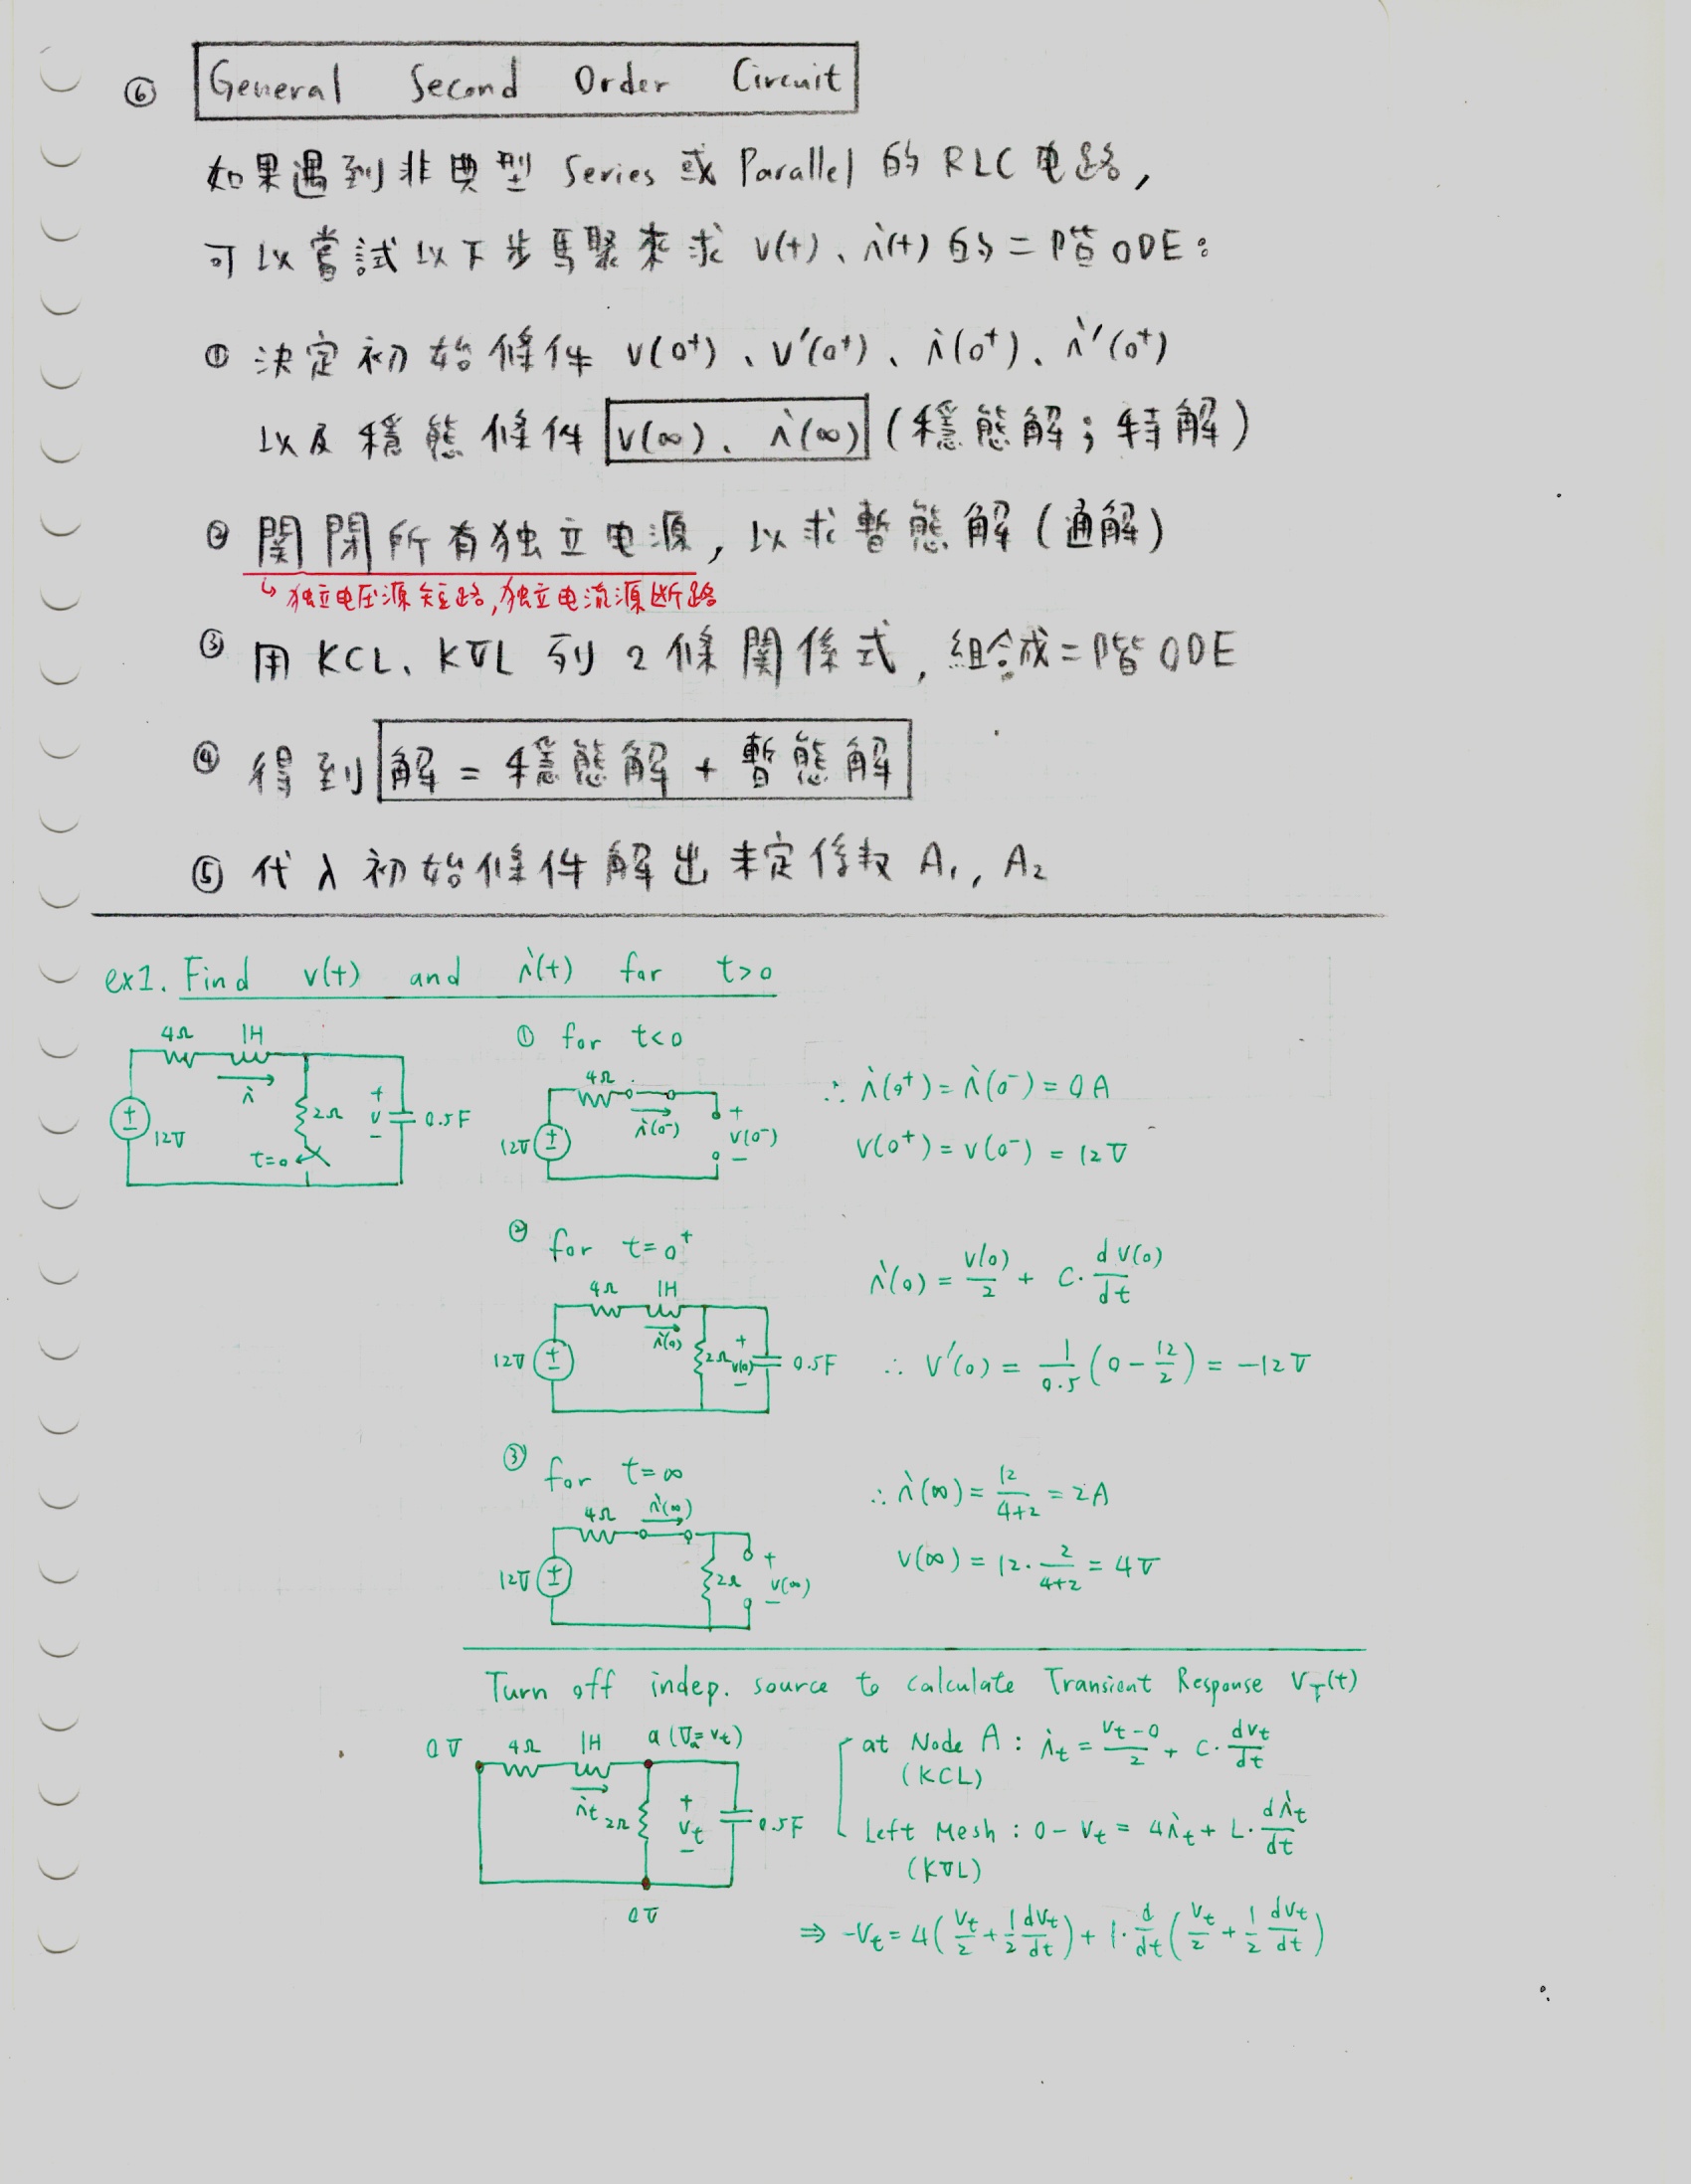 ⑥ General Second Order Circuit
如果遇到非典型 Series 或 Parallel 的 RLC 电路,
可以嘗試以下步驟來求 v(t)、i(t) 的二階 ODE:
① 決定初始條件 v(0⁺)、v'(0⁺)、i(0⁺)、i'(0⁺)
以及穩態條件 v(∞)、i(∞) (穩態解;特解)
② 関閉所有独立电源, 以求暫態解(通解)
↳ 独立电压源短路,独立电流源断路
③ 用 KCL、KVL 列 2 條関係式, 組合成二階 ODE
④ 得到 解 = 穩態解 + 暫態解
⑤ 代入初始條件解出未定係数 A₁, A₂
ex1. Find v(t) and i(t) for t>0
4Ω 1H
i
12V
2Ω
+ v −
0.5F
t=0
① for t<0
4Ω
i(0⁻)
12V
+ v(0⁻) −
∴ i(0⁺) = i(0⁻) = 0A
v(0⁺) = v(0⁻) = 12V
② for t=0⁺
4Ω 1H
i(0)
12V
2Ω
+ v(0) −
0.5F
i(0) = v(0)/2 + C · dv(0)/dt
∴ v'(0) = 1/0.5 (0 − 12/2) = −12V
③ for t=∞
4Ω i(∞)
12V
2Ω
+ v(∞) −
∴ i(∞) = 12/(4+2) = 2A
v(∞) = 12 · 2/(4+2) = 4V
Turn off indep. source to calculate Transient Response V_T(t)
0V 4Ω 1H a (Vₐ=vt)
it 2Ω
+ vt −
0.5F
0V
at Node A : it = (vt−0)/2 + C · dvt/dt
(KCL)
Left Mesh : 0 − vt = 4it + L · dit/dt
(KVL)
⇒ −vt = 4(vt/2 + 1/2 dvt/dt) + 1 · d/dt (vt/2 + 1/2 dvt/dt)